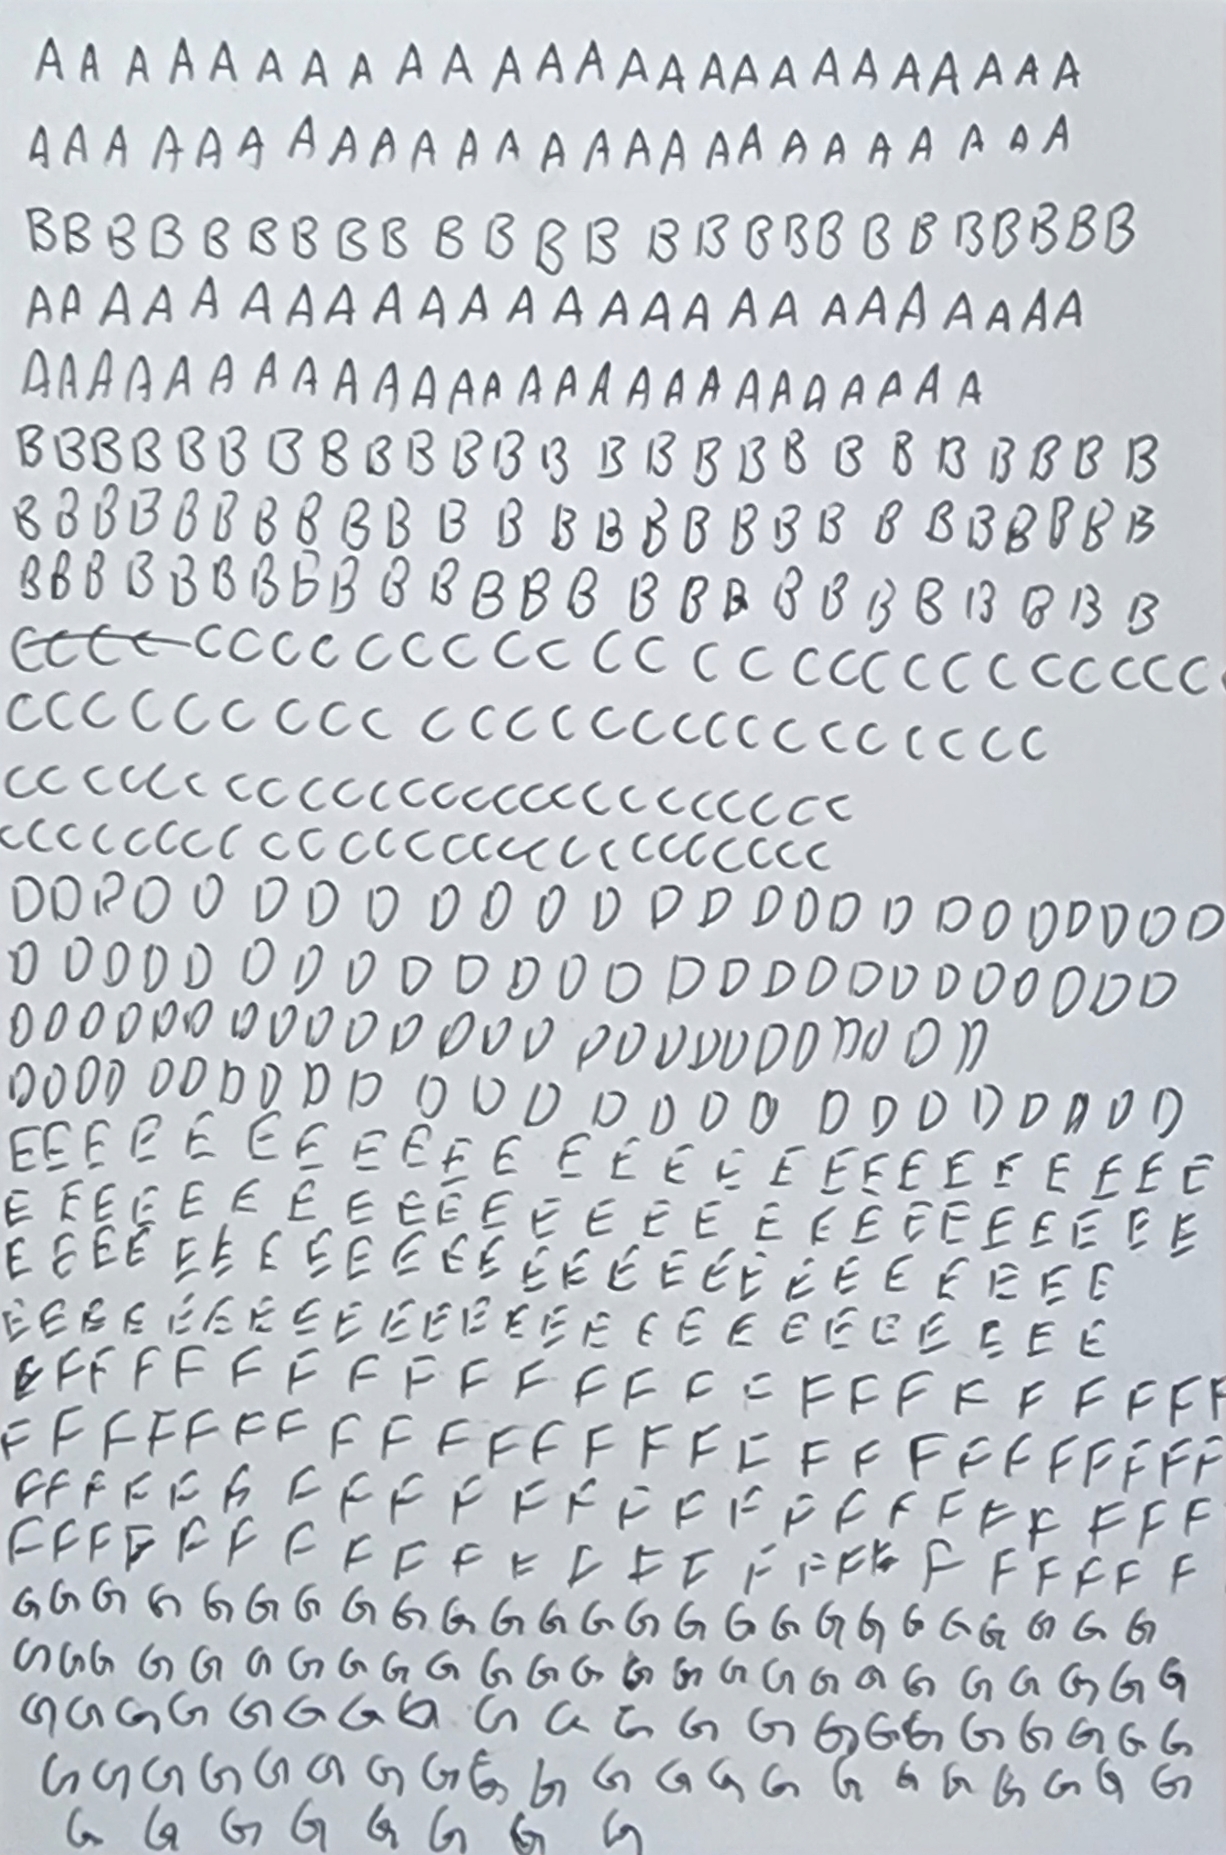 A A A A A A A A A A A A A A A A A A A A A A A A A
A A A A A A A A A A A A A A A A A A A A A A A A
B B B B B B B B B B B B B B B B B B B B B B B B B
A A A A A A A A A A A A A A A A A A A A A A A A
A A A A A A A A A A A A A A A A A A A A A A A A
B B B B B B B B B B B B B B B B B B B B B B B B B
B B B B B B B B B B B B B B B B B B B B B B B B B
B B B B B B B B B B B B B B B B B B B B B B B B B
C C C C C C C C C C C C C C C C C C C C C C C C C C C C
C C C C C C C C C C C C C C C C C C C C C C C C C C
C C C C C C C C C C C C C C C C C C C C C C C C C C
C C C C C C C C C C C C C C C C C C C C C C C C C C
D D D D D D D D D D D D D D D D D D D D D D D D D
D D D D D D D D D D D D D D D D D D D D D D D D D
D D D D D D D D D D D D D D D D D D D D D D D D D D
D D D D D D D D D D D D D D D D D D D D D D D D D
E E E E E E E E E E E E E E E E E E E E E E E E E
E E E E E E E E E E E E E E E E E E E E E E E E
E E E E E E E E E E E E E E E E E E E E E E E E
E E E E E E E E E E E E E E E E E E E E E E E E
F F F F F F F F F F F F F F F F F F F F F F F
F F F F F F F F F F F F F F F F F F F F F F F F
F F F F F F F F F F F F F F F F F F F F F F F
F F F F F F F F F F F F F F F F F F F F F F F F
G G G G G G G G G G G G G G G G G G G G G G G G
G G G G G G G G G G G G G G G G G G G G G G G G
G G G G G G G G G G G G G G G G G G G G G G
G G G G G G G G G G G G G G G G G G G G G
G G G G G G G G